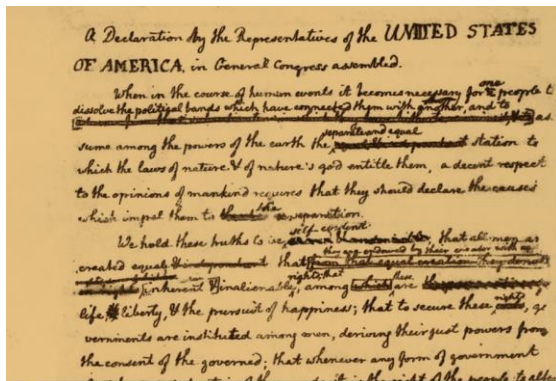 A Declaration by the Representatives of the UNITED STATES
OF AMERICA, in General Congress assembled.
When in the course of human events it becomes necessary for one people to
dissolve the political bands which have connected them with another, and to
as-
sume among the powers of the earth the separate and equal station to
which the laws of nature & of nature's god entitle them, a decent respect
to the opinions of mankind requires that they should declare the causes
which impel them to the separation.
We hold these truths to be self-evident that all men are
created equal that they are endowed by their creator with
inherent & inalienable rights; that among these are
life, liberty, & the pursuit of happiness; that to secure these rights, go
vernments are instituted among men, deriving their just powers from
the consent of the governed; that whenever any form of government
it is the right of the people to alter